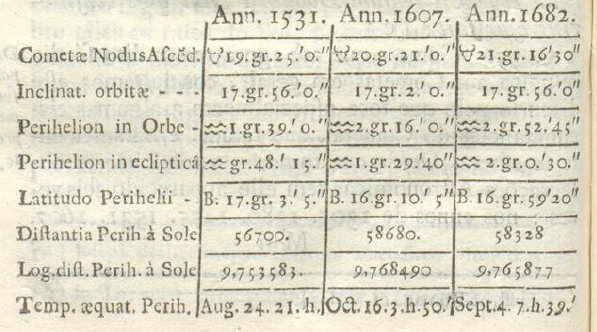 Ann. 1531. Ann. 1607. Ann. 1682.
Cometæ Nodus Ascēd. ♉19.gr.25.'0." ♉20.gr.21.'0." ♉21.gr.16'30"
Inclinat. orbitæ - - - 17.gr.56.'0." 17.gr.2.'0." 17.gr.56.'0"
Perihelion in Orbe - ♒1.gr.39.'0." ♒2.gr.16.'0." ♒2.gr.52.'45"
Perihelion in eclipticâ ♒gr.48.'15." ♒1.gr.29.'40" ♒2.gr.0.'30."
Latitudo Perihelii - B. 17.gr.3.'5." B. 16.gr.10.'5" B. 16.gr.59'20"
Distantia Perih. à Sole 56700. 58680. 58328
Log. dist. Perih. à Sole 9,753583. 9,768490 9,765877
Temp. æquat. Perih. Aug. 24. 21. h. Oct. 16. 3. h. 50.' Sept. 4. 7. h. 39.'